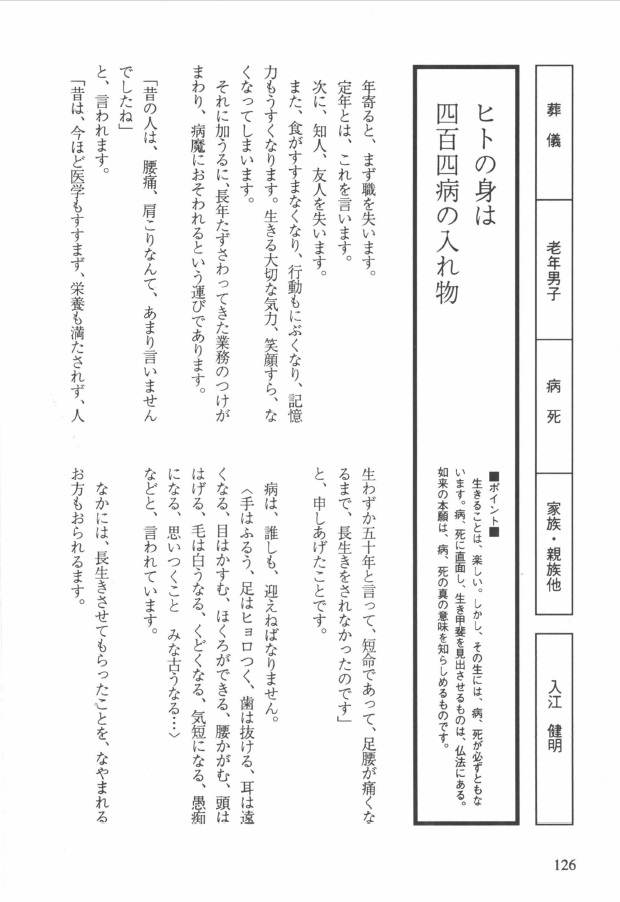 葬儀
老年男子
病死
家族・親族他
入江 健明
ヒトの身は
四百四病の入れ物
■ポイント■
生きることは、楽しい。しかし、その生には、病、死が必ずともな
います。病、死に直面し、生き甲斐を見出させるものは、仏法にある。
如来の本願は、病、死の真の意味を知らしめるものです。
年寄ると、まず職を失います。
定年とは、これを言います。
次に、知人、友人を失います。
また、食がすすまなくなり、行動もにぶくなり、記憶
力もうすくなります。生きる大切な気力、笑顔すら、な
くなってしまいます。
それに加うるに、長年たずさわってきた業務のつけが
まわり、病魔におそわれるという運びであります。
「昔の人は、腰痛、肩こりなんて、あまり言いません
でしたね」
と、言われます。
「昔は、今ほど医学もすすまず、栄養も満たされず、人
生わずか五十年と言って、短命であって、足腰が痛くな
るまで、長生きをされなかったのです」
と、申しあげたことです。
病は、誰しも、迎えねばなりません。
〈手はふるう、足はヒョロつく、歯は抜ける、耳は遠
くなる、目はかすむ、ほくろができる、腰かがむ、頭は
はげる、毛は白うなる、くどくなる、気短になる、愚痴
になる、思いつくこと みな古うなる…〉
などと、言われています。
なかには、長生きさせてもらったことを、なやまれる
お方もおられるます。
126